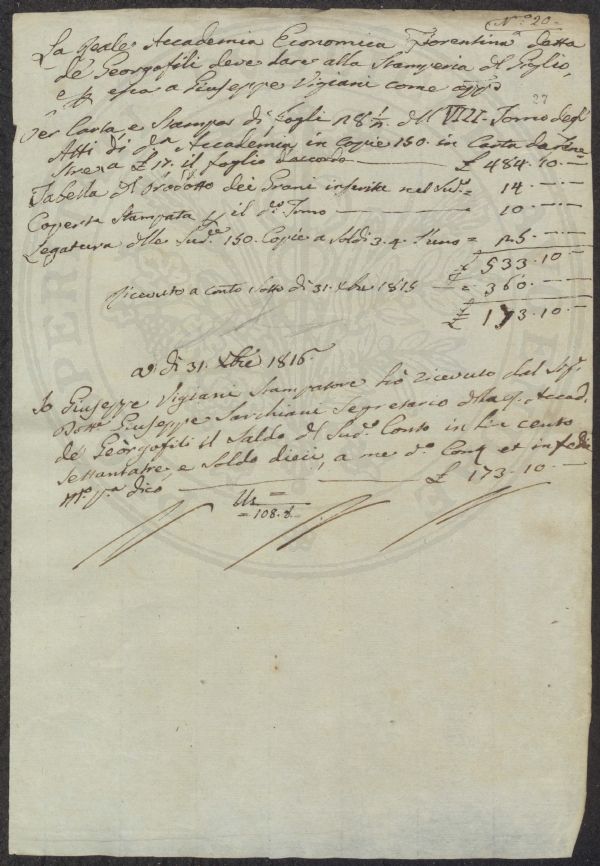 N.° 20.
La Reale Accademia Economica Fiorentina detta
de' Georgofili deve dare alla Stamperia del Giglio,
e p essa a Giuseppe Vigiani come app.°
27
Per Carta, e Stampa di Fogli 28 1/2 del VIII. Tomo degl'
Atti di d.a Accademia in Copie 150. in Carta da
a £ 17. il foglio d'accordo £ 484. 10. —
Tabella del Prodotto dei Grani inserita nel Sud.° = 14. — . —
Coperta Stampata p il d.° Tomo 10. — . —
Legatura delle Sud.e 150. Copie a Soldi 3.4. l'uno = 25. — . —
£ 533. 10 —
Ricevuto a conto sotto di 31. Xbre 1815 — = 360. — —
£ 173. 10. —
a dì 31. Xbre 1816.
Io Giuseppe Vigiani Stampatore hò ricevuto dal Sig.r
Dott.e Giuseppe Sarchiani Segretario della q. Accad.
de' Georgofili il Saldo del Sud.° Conto in Lire cento
settantatre, e Soldo dieci, a me d.° Cont. et in fede
M.° p.a dico £ 173. 10. —
= 108. 8.